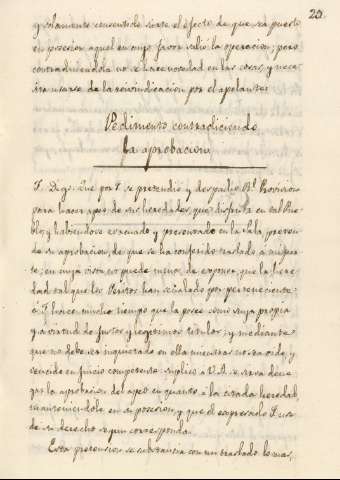 25.
y solamente consentido surte el efecto de que sea puesto
en posesion aquel en cuyo favor salió la operacion; pero
contradiciendola no se hace novedad en las cosas, y nece-
sita usarse de la reivindicacion por el apelante.
Pedimento contradiciendo
la aprobacion.
F. Digo: Que por F. se pretendió y despachó Rl. Provision
para hacer apeo de sus heredades, que disfruta en tal Pue-
blo; y habiendose evacuado y presentado en la Sala, preten-
de su aprobacion, de que se ha conferido traslado á mi par-
te; en cuya vista no puede menos de exponer, que la here-
dad tal que los Peritos han señalado por perteneciente
á F. hace mucho tiempo que la posee como suya propia
y á virtud de justos y legitimos titulos; y mediante
que no debe ser inquietado en ella mientras no sea oido, y
vencido en juicio competente suplico á V.A. se sirva dene-
gar la aprobacion del apeo en cuanto á la citada heredad,
manteniendole en su posesion, y que el expresado F. use
de su derecho segun corresponda.
Esta pretension se substancia con un traslado los mas,